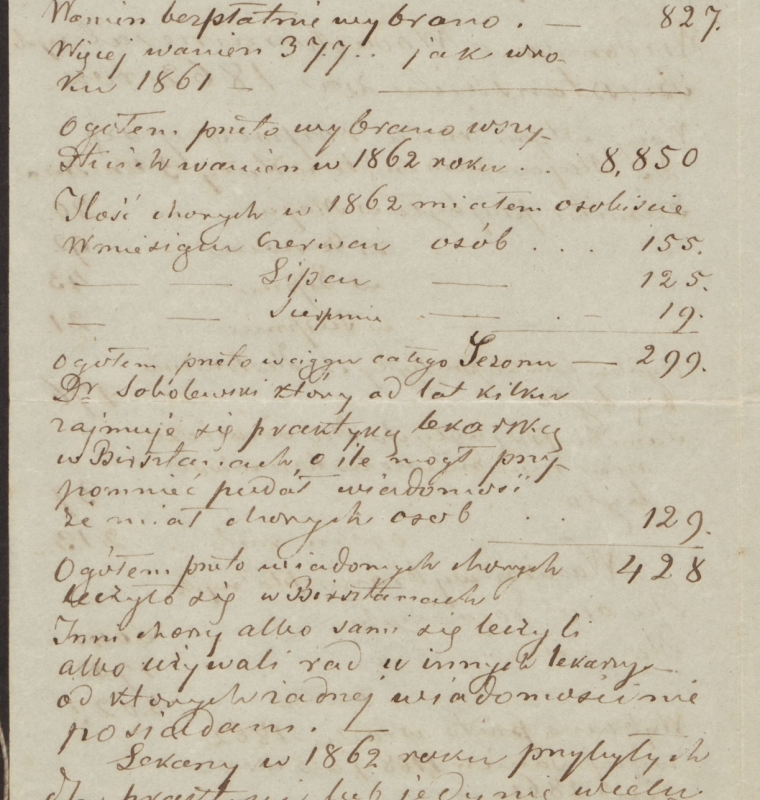 Wanien bezpłatnie wybrano . — 827.
Więcej wanien 377.. jak wro
ku 1861 —
Ogółem przeto wybrano wszy-
stkich wanien w 1862 roku . . 8,850
Ilość chorych w 1862 miałem osobiście
W miesiącu Czerwcu osób . . . 155.
— — Lipcu — 125.
— — Sierpniu — . – 19.
Ogółem przeto w ciągu całego Sezonu — 299.
Dr Sobolewski który od lat kilku
zajmuje się praktyką lekarską
w Birsztanach, o ile mógł przy-
pomnieć podał wiadomość
że miał chorych osob . . 129.
Ogółem przeto wiadomych chorych 428
leczyło się w Birsztanach
Inni chorzy albo sami się leczyli
albo używali rad w innych lekarzy
od których żadnej wiadomości nie
posiadam. —
Lekarzy w 1862 roku przybyłych
dla praktyki lub jedynie wielu